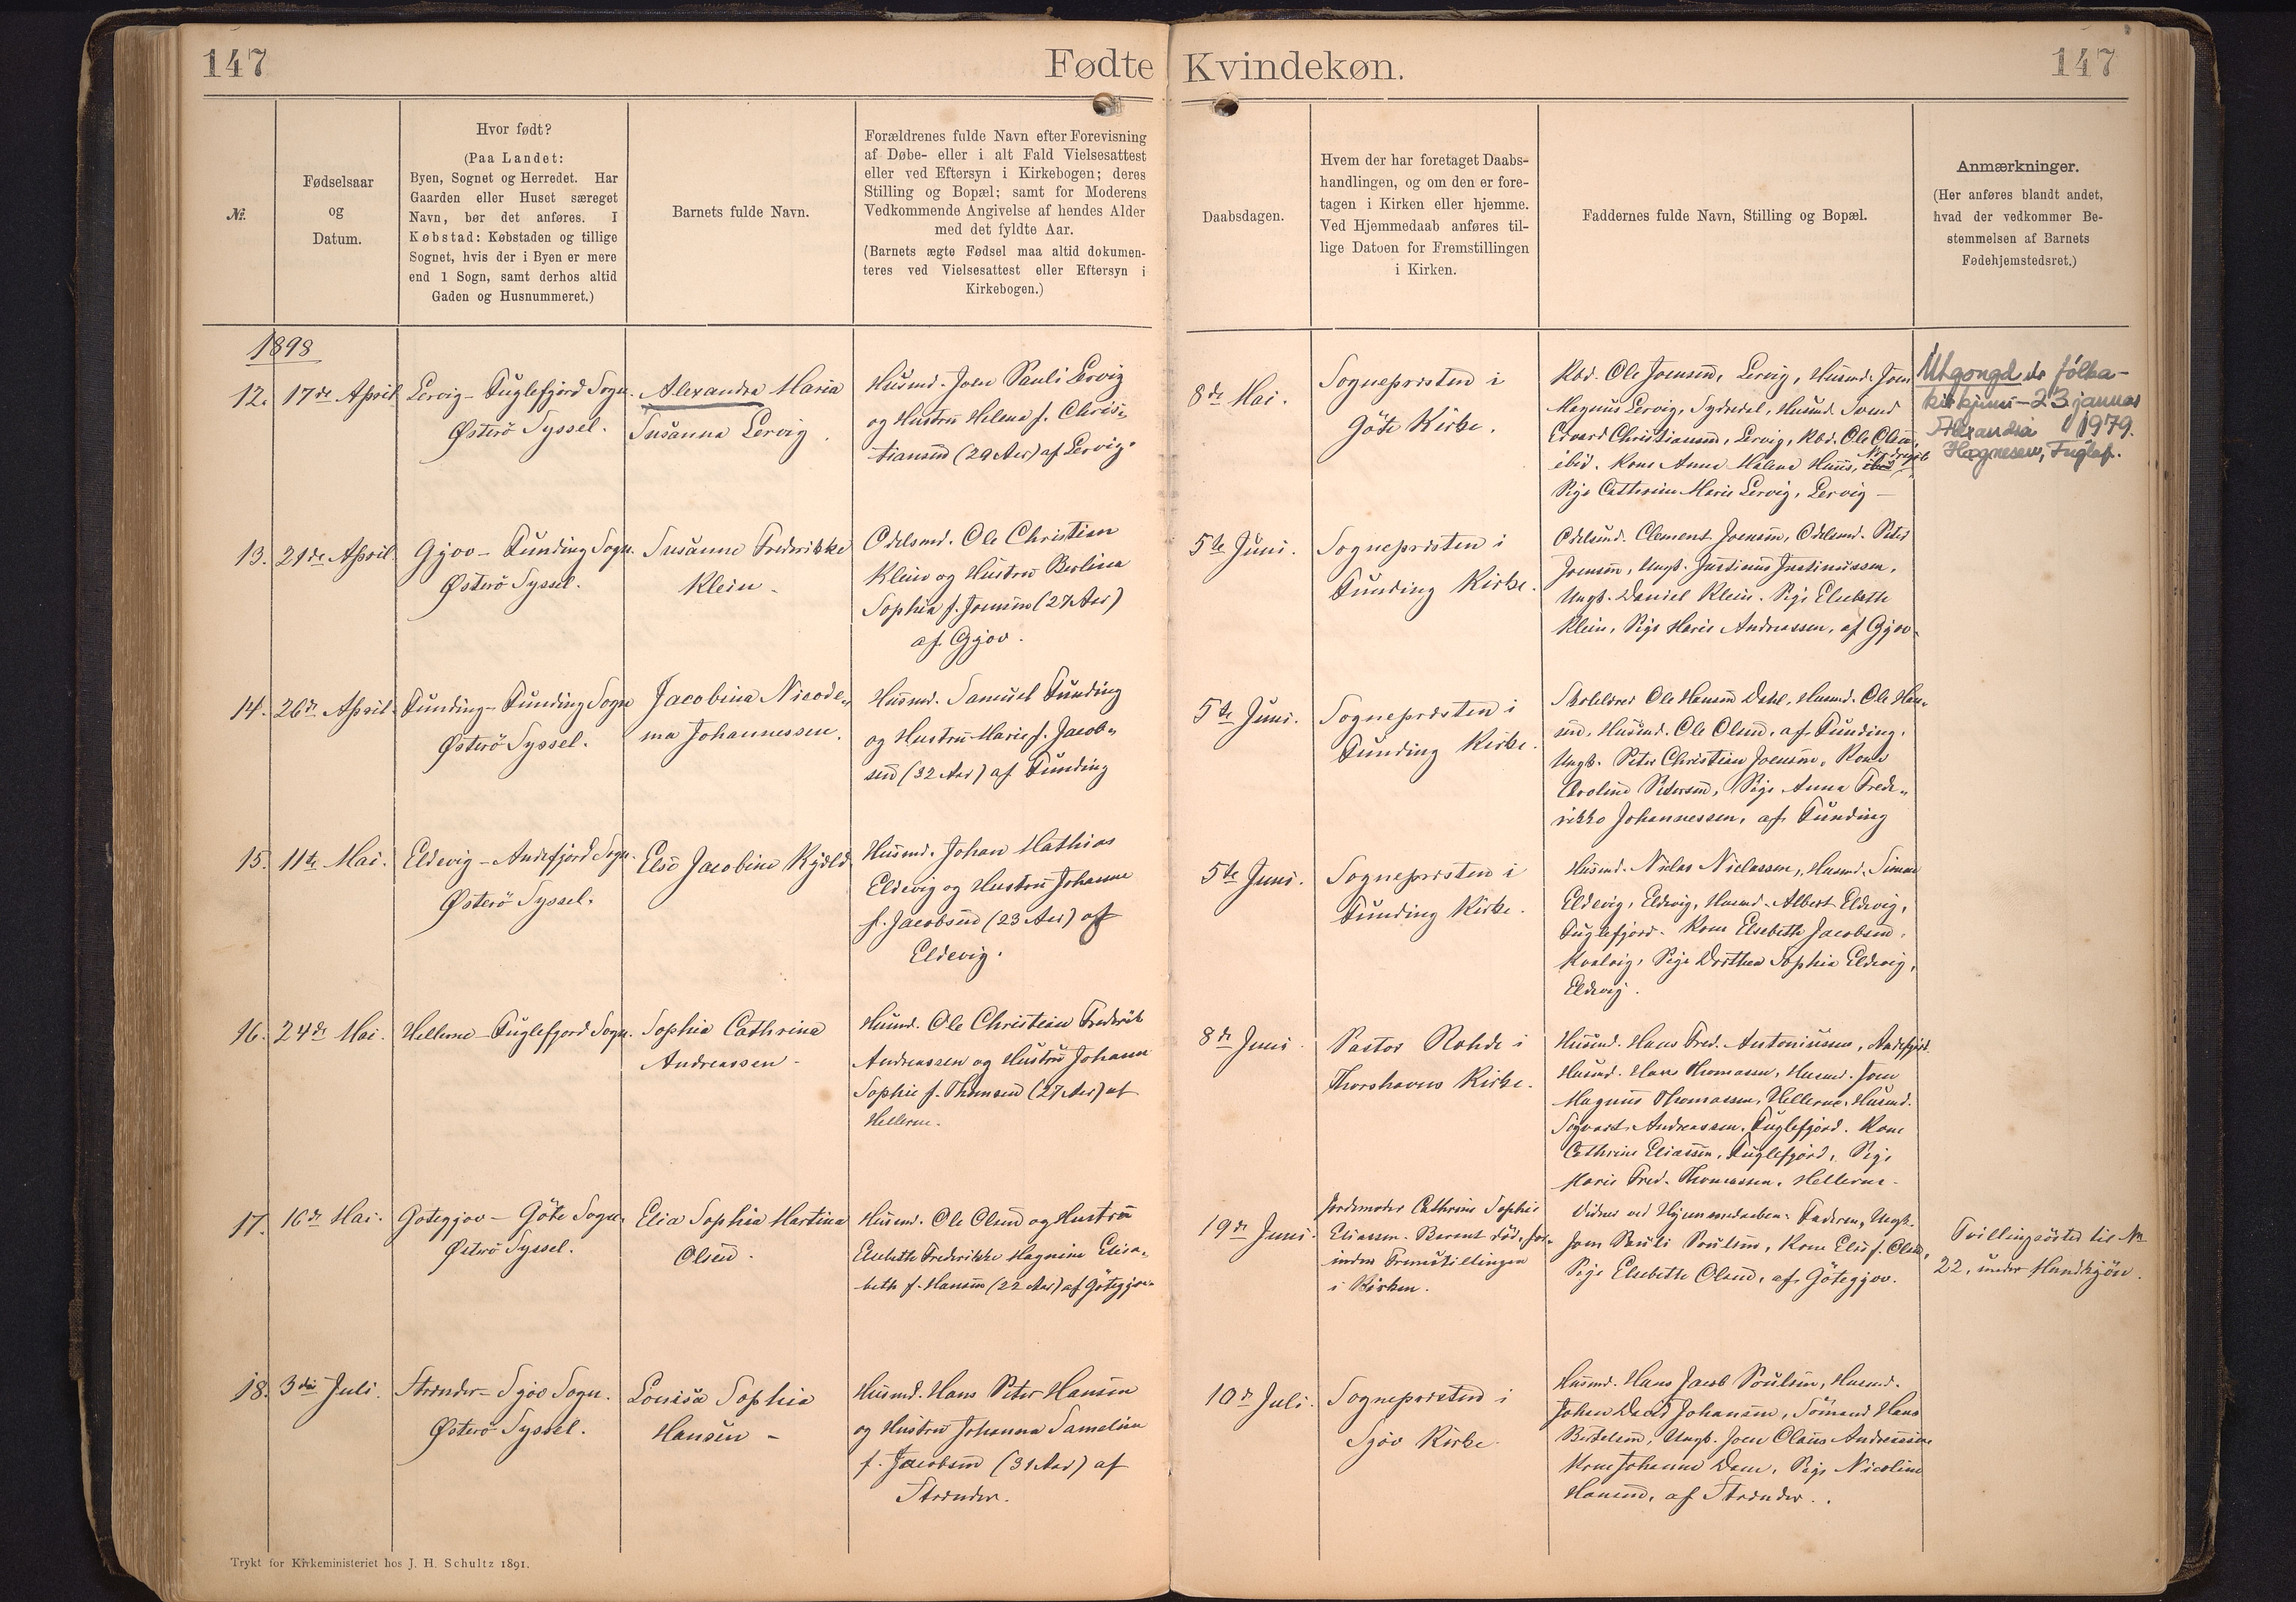 147
Fødte
Kvindekøn.
147
№.
Fødselsaar
og
Datum.
Hvor født?
(Paa Landet:
Byen, Sognet og Herredet. Har
Gaarden eller Huset særeget
Navn, bør det anføres. I
Købstad: Købstaden og tillige
Sognet, hvis der i Byen er mere
end 1 Sogn, samt derhos altid
Gaden og Husnummeret.)
Barnets fulde Navn.
Forældrenes fulde Navn efter Forevisning
af Døbe- eller i alt Fald Vielsesattest
eller ved Eftersyn i Kirkebogen; deres
Stilling og Bopæl; samt for Moderens
Vedkommende Angivelse af hendes Alder
med det fyldte Aar.
(Barnets ægte Fødsel maa altid dokumen-
teres ved Vielsesattest eller Eftersyn i
Kirkebogen.)
Daabsdagen.
Hvem der har foretaget Daabs-
handlingen, og om den er fore-
tagen i Kirken eller hjemme.
Ved Hjemmedaab anføres til-
lige Datoen for Fremstillingen
i Kirken.
Faddernes fulde Navn, Stilling og Bopæl.
Anmærkninger.
(Her anføres blandt andet,
hvad der vedkommer Be-
stemmelsen af Barnets
Fødehjemstedsret.)
1898
12.
17de April
Lervig - Fuglefjord Sogn.
Østerö Syssel.
Alexandra Maria
Susanna Lervig.
Husmd. Joen Pauli Lervig
og Hustrü Helena f. Chris-
tiansen (29 Aar) af Lervig.
8de Mai.
Sognepræsten i
Göte Kirke.
Kbd. Ole Joensen, Lervig, Husmd. Joen
Magnus Lervig, Sydredal, Husmd. Svend
Edvard Christiansen, Lervig, Kbd. Ole Olsen,
ibid. Kone Anna Malene Huus,
Pige Cathrine Marie Lervig, Lervig -
Útgongd úr fólka-
kirkjuni - 23. januar
Alexandra 1979.
Høgnesen, Fuglaf.
13.
21de April
Gjov - Funding Sogn.
Østerö Syssel.
Susanne Frederikke
Klein.
Odelsmd. Ole Christian
Klein og Hustrü Berlina
Sophia f. Joensen (27 Aar)
af Gjov.
5te Juni.
Sognepræsten i
Funding Kirke.
Odelsmd. Clement Joensen, Odelsmd. Peter
Joensen, Ungk. Justinus Justinussen,
Ungk. Daniel Klein. Pige Elsebeth
Klein, Pige Marie Andreassen, af Gjov.
14.
26de April.
Funding - Funding Sogn
Østerö Syssel.
Jacobina Nicode-
ma Johannessen.
Husmd. Samuel Funding
og Hustrü Marie f. Jacob-
sen (32 Aar) af Funding
5te Juni.
Sognepræsten i
Funding Kirke.
Skolelærer Ole Hansen Dahl, Husmd. Ole Han-
sen, Husmd. Ole Olsen, af Funding,
Ungk. Peter Christian Joensen, Kone
Caroline Petersen, Pige Anna Frede-
rikke Johannessen, af Funding
15.
11te Mai.
Eldevig - Andefjord Sogn.
Østerö Syssel.
Else Jacobine Kjæld
Husmd. Johan Mathias
Eldevig og Hustrü Johanne
f. Jacobsen (23 Aar) af
Eldevig.
5te Juni.
Sognepræsten i
Funding Kirke.
Husmd. Niclas Niclassen, Husmd. Simon
Eldevig, Eldevig, Husmd. Albert Eldevig,
Fuglefjord. Kone Elsebeth Jacobsen,
Kvalvig, Pige Dorthea Sophie Eldevig,
Eldevig.
16.
24de Mai.
Hellerne - Fuglefjord Sogn.
Sophie Cathrine
Andreassen -
Husmd. Ole Christian Frederik
Andreassen og Hustrü Johanne
Sophie f. Thomsen (27 Aar) af
Hellerne.
8de Juni
Pastor Rohde i
Thorshavns Kirke.
Husmd. Hans Fred. Antoniussen, Andefjord.
Husmd. Hans Thomassen, Husmd. Joen
Magnus Thomassen, Hellerne, Husmd.
Sigvart Andreassen, Fuglefjord. Kone
Cathrine Eliassen, Fuglefjord, Pige
Marie Fred. Thomassen, Hellerne.
17.
16de Mai.
Götegjov - Göte Sogn.
Østerö Syssel.
Elia Sophia Martina
Olsen.
Husmd. Ole Olsen og Hustrü
Elsebeth Frederikke Magnine Elisa-
beth f. Hansen (22 Aar) af Götegjov.
19de Juni.
Jordemoder Cathrine Sophie
Eliassen. Barnet död, for-
inden Fremstillingen
i Kirken.
Vidner ved Hjemmedaaben: Faderen, Ungk.
Joen Pauli Poulsen, Kone Else f. Olsen,
Pige Elsebeth Olsen, af Götegjov.
Tvillingsöster til №
22, under Mandkjön.
18.
3die Juli.
Strænder - Sjov Sogn.
Østerö Syssel.
Louisa Sophia
Hansen -
Husmd. Hans Peter Hansen
og Hustrü Johanna Samaline
f. Jacobsen (31 Aar) af
Strænder.
10de Juli.
Sognepræsten i
Sjöv Kirke.
Husmd. Hans Jacob Poulsen, Husmd.
Johan David Johansen, Sömand Hans
Bertelsen, Ungk. Joen Olaus Andreassen
Kone Johanne Dam, Pige Nicoline
Hansen, af Strænder.
Trykt for Kirkeministeriet hos J. H. Schultz 1891.